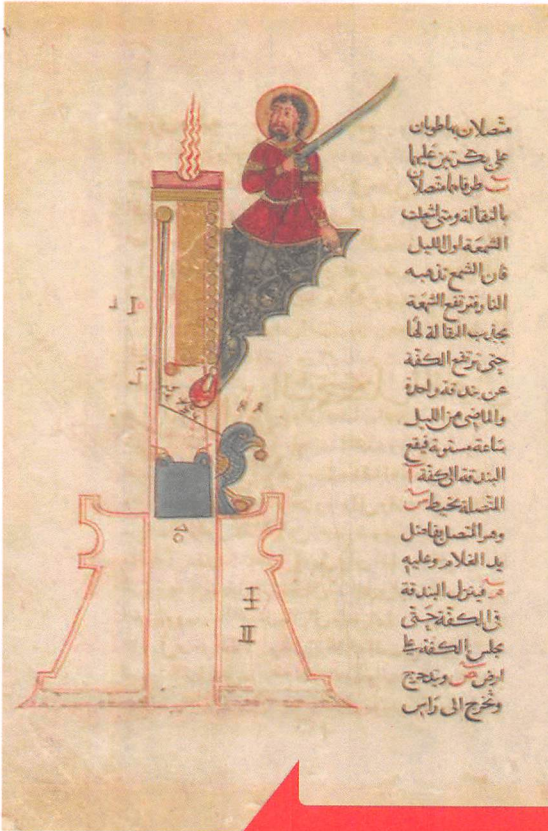 متصلان ماطوبان
على بكرتين عليهما
طرفاهما متصلان
بالثقالة ومتى اشعلت
الشمعة اول الليل
فان الشمع تذهبه
النار وترتفع الشمعة
بجذب الثقالة لها
حتى ترتفع الكفة
عن بندقة واحدة
والماضى من الليل
ساعة مستوية فيقع
البندقة الى كفة آ
المتصلة بخيط س
وهو المتصل بفاضل
يد الغلام وعليه
فينزل البندقة
فى الكفة حتى
يجلس الكفة على
ارض ص ويتدحرج
وتخرج الى راس